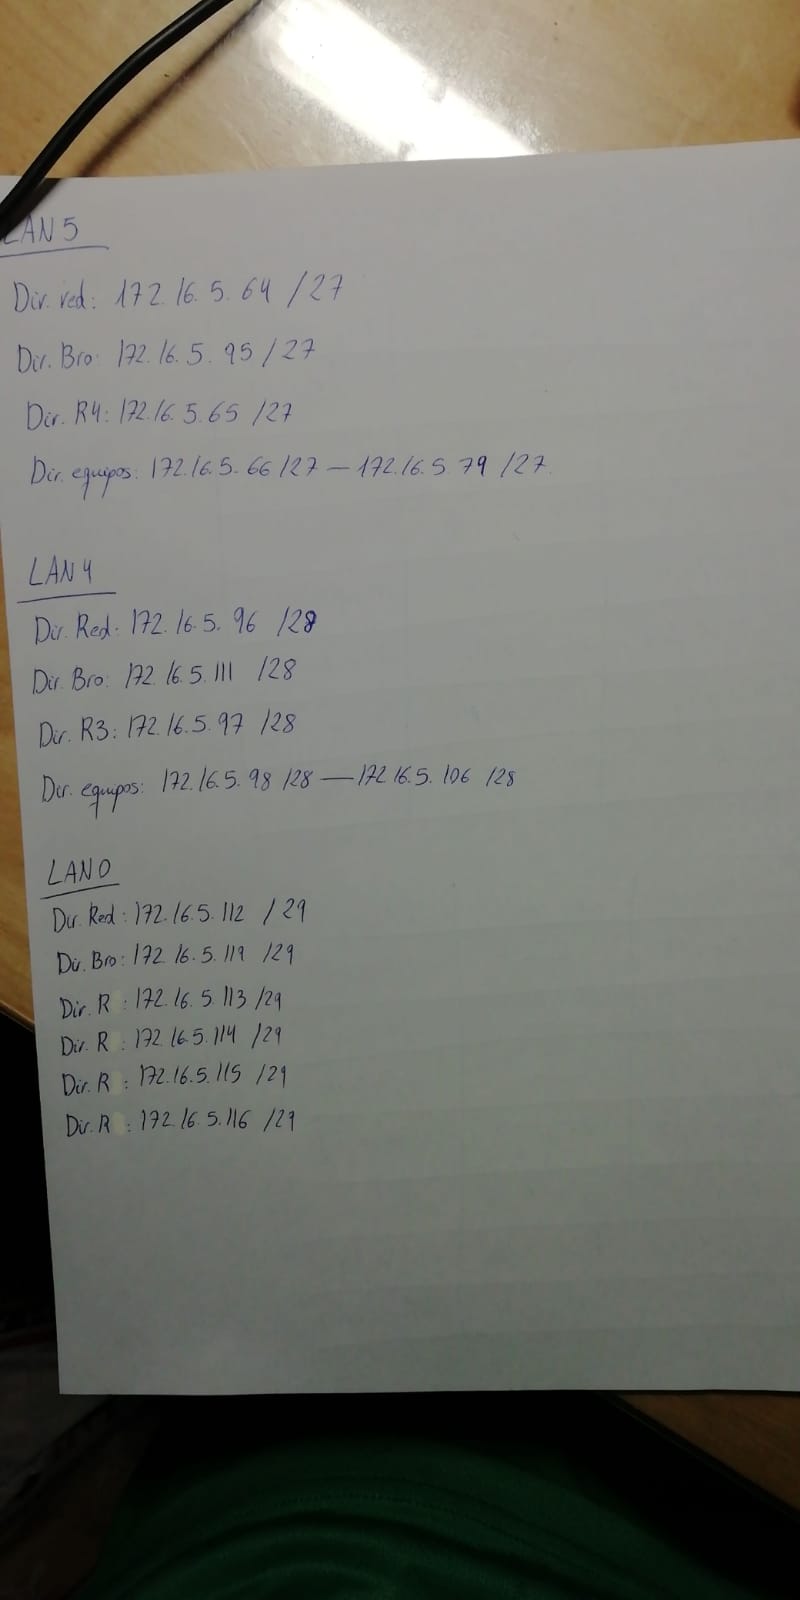 LAN 5
Dir. red: 172.16.5.64 /27
Dir. Bro: 172.16.5.95 /27
Dir. R4: 172.16.5.65 /27
Dir. equipos: 172.16.5.66 /27 — 172.16.5.79 /27
LAN 4
Dir. Red: 172.16.5.96 /28
Dir. Bro: 172.16.5.111 /28
Dir. R3: 172.16.5.97 /28
Dir. equipos: 172.16.5.98 /28 — 172.16.5.106 /28
LAN 0
Dir. Red: 172.16.5.112 /29
Dir. Bro: 172.16.5.119 /29
Dir. R : 172.16.5.113 /29
Dir. R : 172.16.5.114 /29
Dir. R : 172.16.5.115 /29
Dir. R : 172.16.5.116 /29